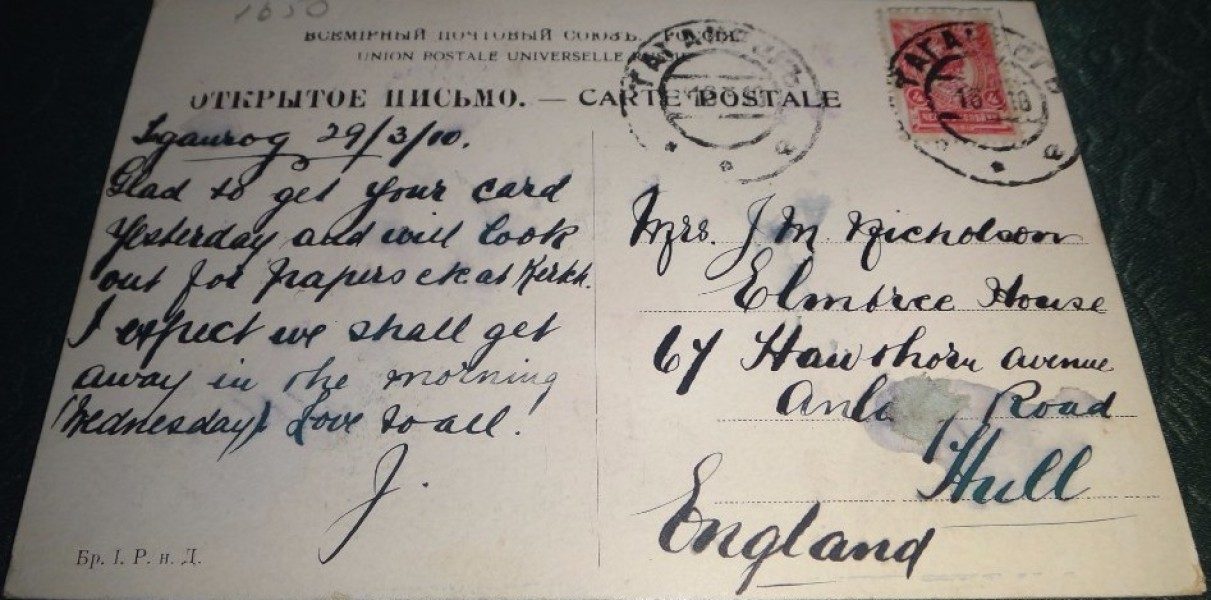 1650
ВСЕМІРНЫЙ ПОЧТОВЫЙ СОЮЗЪ. РОССІЯ
UNION POSTALE UNIVERSELLE
ОТКРЫТОЕ ПИСЬМО. — CARTE POSTALE
ТАГАНРОГЪ
ТАГАНРОГЪ
Taganrog 29/3/10.
Glad to get your card
yesterday and will look
out for papers etc. at Kertch.
I expect we shall get
away in the morning
(Wednesday). Love to all.
J.
Mrs. J M Nicholson
Elmtree House
67 Hawthorn avenue
Road
Hull
England
Бр. І. Р. н. Д.